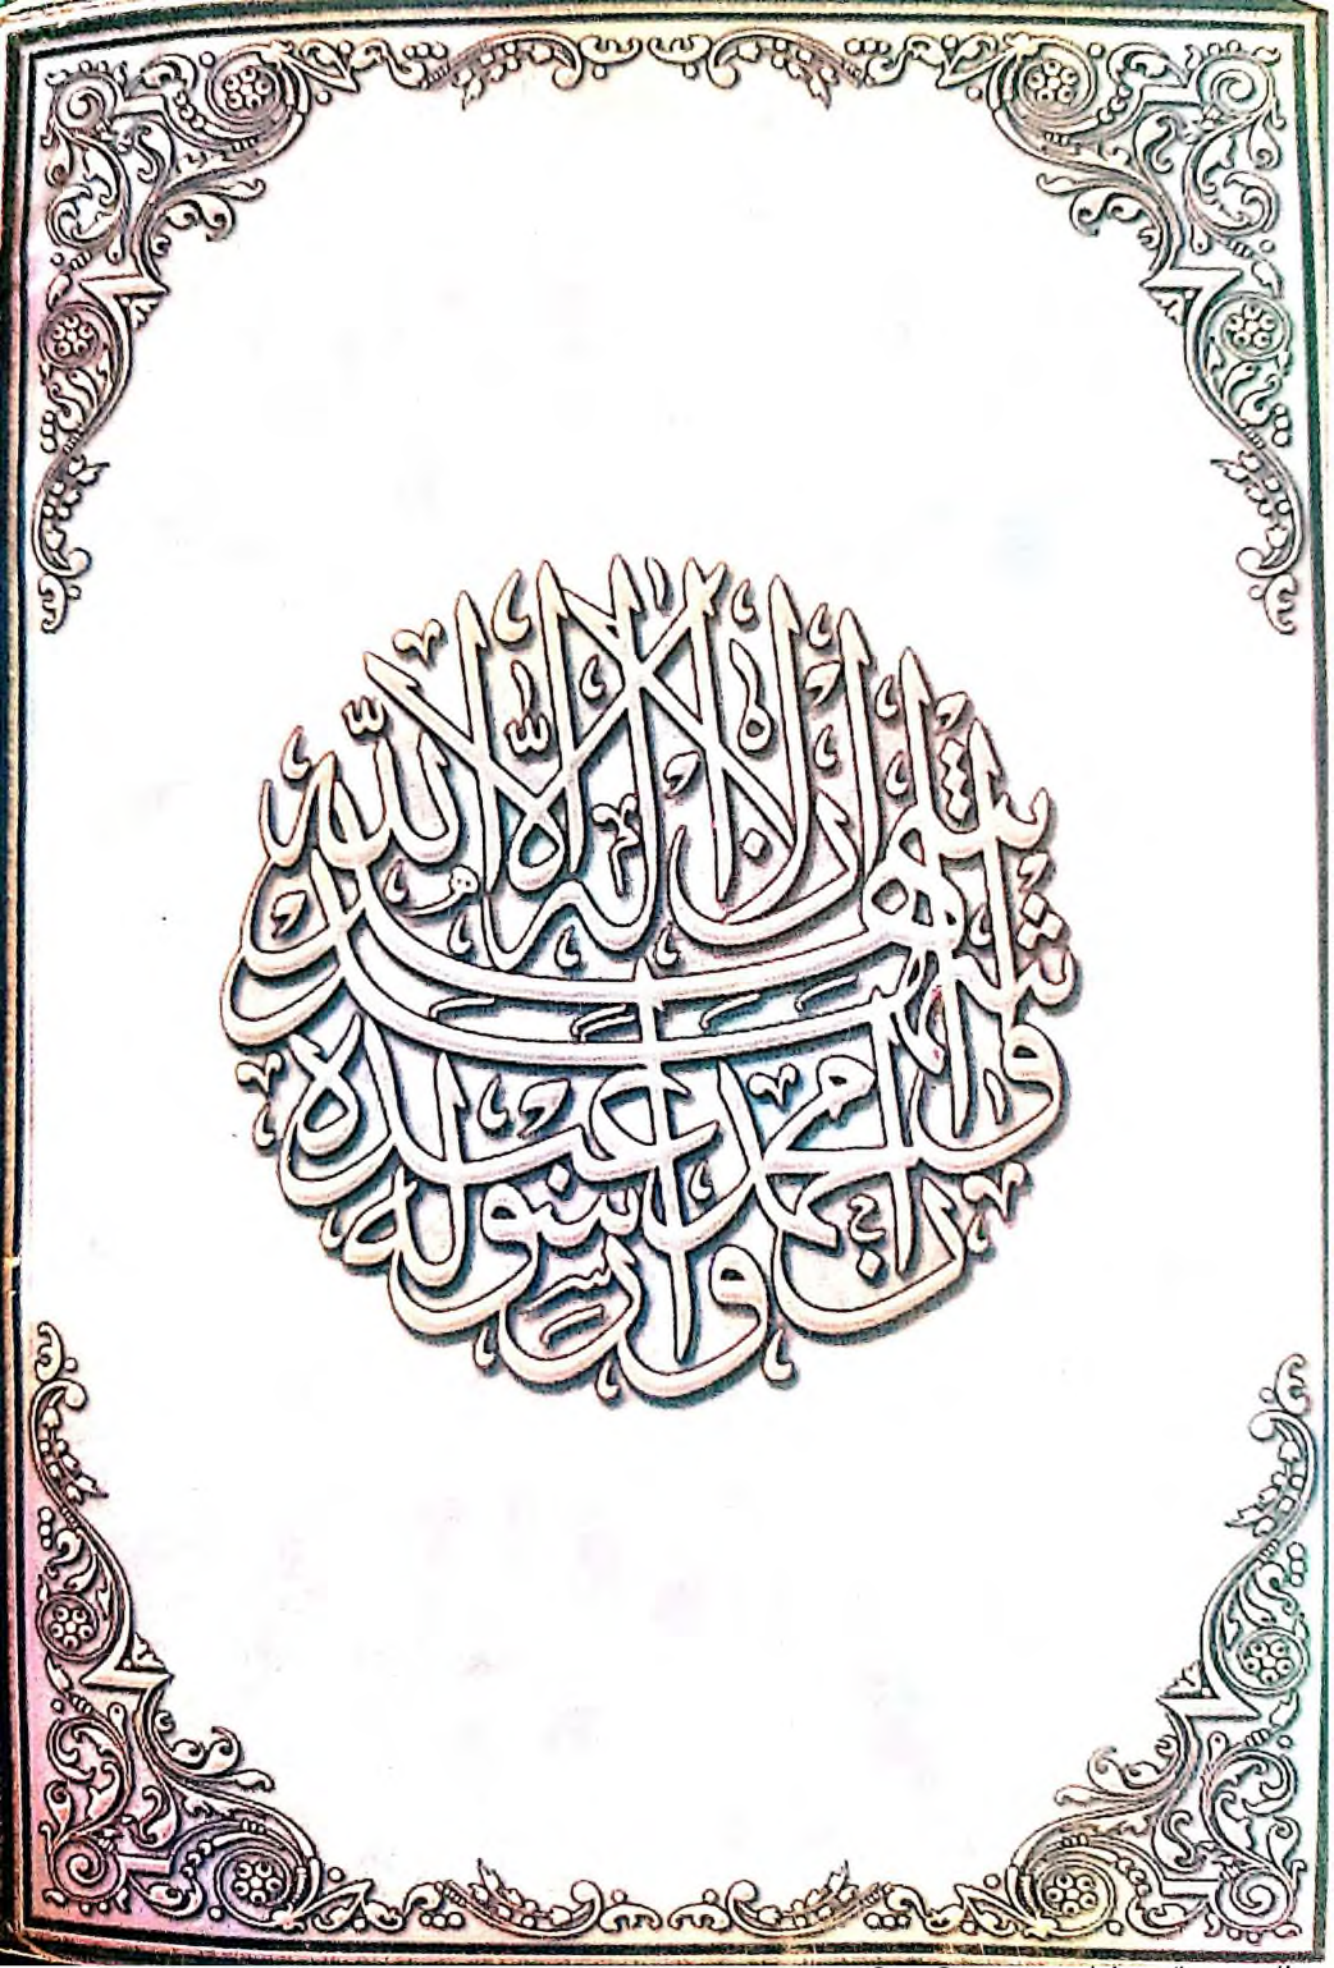 اشهد ان لا اله الا الله
واشهد ان محمدا عبده ورسوله